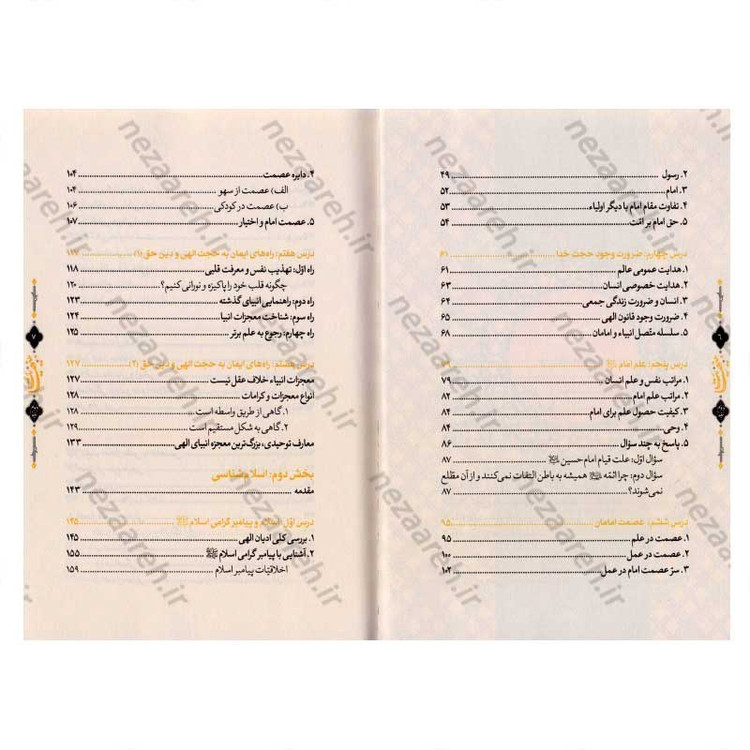 ۲. رسول ۴۹
۳. امام ۵۲
۴. تفاوت مقام امام با دیگر اولیاء ۵۳
۵. حق امام بر امّت ۵۴
درس چهارم: ضرورت وجود حجت خدا ۶۱
۱. هدایت عمومی عالم ۶۱
۲. هدایت خصوصی انسان ۶۳
۳. انسان و ضرورت زندگی جمعی ۶۴
۴. ضرورت وجود قانون الهی ۶۵
۵. سلسله متّصل انبیاء و امامان ۶۸
درس پنجم: علم امام
۱. مراتب نفس و علم انسان ۷۹
۲. مراتب علم امام ۸۲
۳. کیفیت حصول علم برای امام ۸۲
۴. وحی ۸۴
۵. پاسخ به چند سؤال ۸۶
سؤال اوّل: علت قیام امام حسین ۸۷
سؤال دوم: چرا ائمّه همیشه به باطن التفات نمی‌کنند و از آن مطلع
نمی‌شوند؟ ۸۷
درس ششم: عصمت امامان ۹۵
۱. عصمت در علم ۹۵
۲. عصمت در عمل ۱۰۰
۳. سرّ عصمت امام در عمل ۱۰۲
۶
۴. دایره عصمت ۱۰۴
الف) عصمت از سهو ۱۰۴
ب) عصمت در کودکی ۱۰۶
۵. عصمت امام و اختیار ۱۰۷
درس هفتم: راه‌های ایمان به حجت الهی و دین حق (۱) ۱۱۷
راه اوّل: تهذیب نفس و معرفت قلبی ۱۱۸
چگونه قلب خود را پاکیزه و نورانی کنیم؟ ۱۲۰
راه دوم: راهنمایی انبیای گذشته ۱۲۳
راه سوم: شناخت معجزات انبیا ۱۲۴
راه چهارم: رجوع به علم برتر ۱۲۵
درس هشتم: راه‌های ایمان به حجت الهی و دین حق (۲) ۱۲۷
معجزات انبیاء خلاف عقل نیست ۱۲۷
انواع معجزات و کرامات ۱۲۸
۱. گاهی از طریق واسطه است ۱۲۸
۲. گاهی به شکل مستقیم است ۱۲۹
معارف توحیدی، بزرگ‌ترین معجزه انبیای الهی ۱۳۳
بخش دوم: اسلام‌شناسی
مقدمه ۱۴۳
درس اوّل: اسلام و پیامبر گرامی اسلام ۱۴۵
۱. بررسی کلی ادیان الهی ۱۴۵
۲. آشنایی با پیامبر گرامی اسلام ۱۵۵
اخلاقیّات پیامبر اسلام ۱۵۹
۷
nezaareh.ir
nezaareh.ir
nezaareh.ir
nezaareh.ir
nezaareh.ir
nezaareh.ir